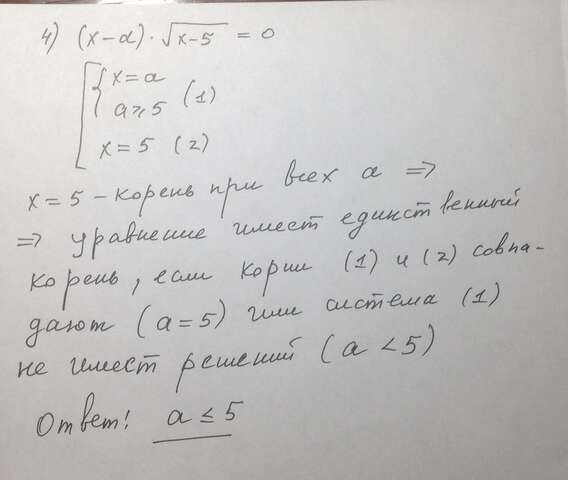 4) (x-a)·√x-5 = 0
x=a
a⩾5 (1)
x=5 (2)
x=5 - корень при всех a ⇒
⇒ уравнение имеет единственный
корень, если корни (1) и (2) совпа-
дают (a=5) или система (1)
не имеет решений (a<5)
Ответ: a≤5